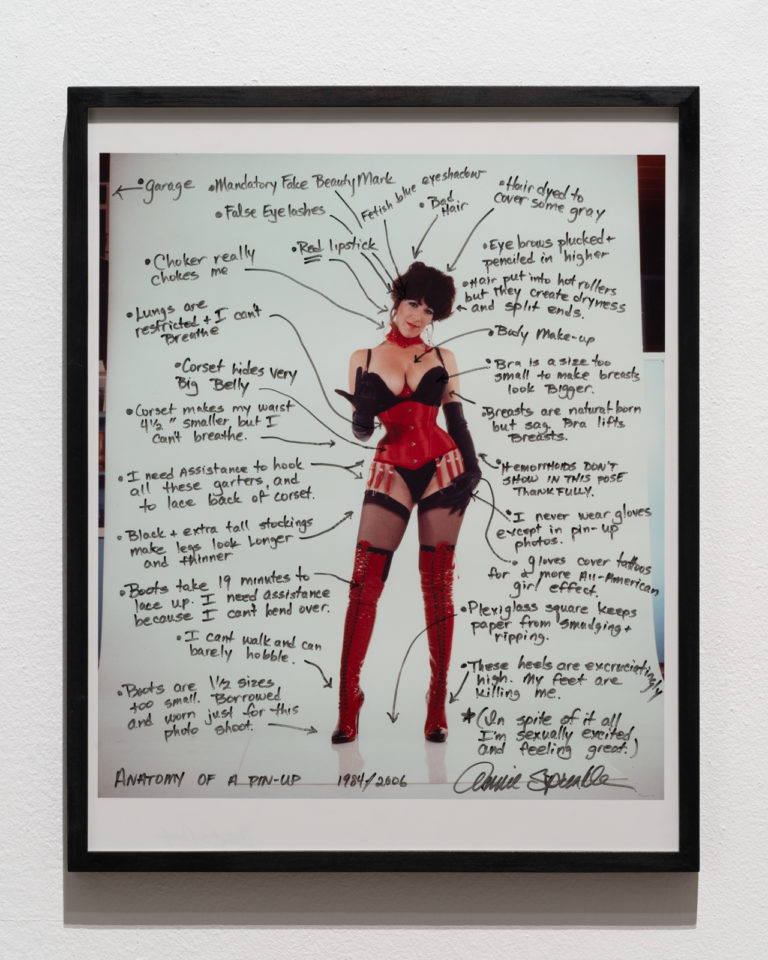 •garage
•Mandatory Fake Beauty Mark
•False Eyelashes
Fetish blue eyeshadow
•Bad
Hair
•Hair dyed to
cover some gray
•Choker really
chokes me
•Red lipstick
•Eye brows plucked +
penciled in higher
•Hair put into hot rollers
but they create dryness
and split ends.
•Lungs are
restricted + I can't
Breathe
•Body Make-up
•Corset hides very
Big Belly
•Bra is a size too
small to make breasts
look Bigger.
•Corset makes my waist
4½" smaller but I
can't breathe.
•Breasts are natural born
but sag. Bra lifts
Breasts.
•I need Assistance to hook
all these garters, and
to lace back of corset.
•HEMORRHOIDS DON'T
SHOW IN THIS POSE
THANKFULLY.
•Black + extra tall stockings
make legs look Longer
and thinner
•I never wear gloves
except in pin-up
photos.
•gloves cover tattoos
for a more All-American
girl effect.
•Boots take 19 minutes to
lace up. I need assistance
because I can't bend over.
•Plexiglass square keeps
paper from smudging +
ripping.
•I cant walk and can
barely hobble.
•These heels are excruciatingly
high. My feet are
killing me.
•Boots are 1½ sizes
too small. Borrowed
and worn just for this
photo shoot.
*(In spite of it all
I'm sexually excited
and feeling great.)
ANATOMY OF A PIN-UP 1984/2006 Annie Sprinkle